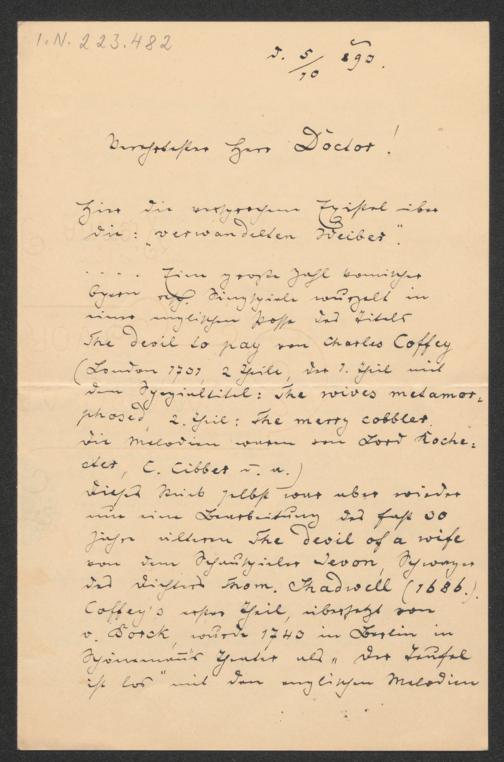 I.N. 223.482
d. 5/10 890.
Verehrtester Herr Doctor!
Hier die versprochene Epistel über
die: "verwandelten Weiber".
. . . . Eine große Zahl komischer
Opern resp. Singspiele wurzelt in
einer englischen Posse des Titels
The devil to pay von Charles Coffey
(London 1731, 2 Theile, der 1. Theil mit
dem Spezialtitel: The wives metamor=
phosed, 2. Theil: The merry cobbler.
Die Melodien waren von Lord Roche=
ster, C. Cibber u. a.)
Dieses Stück selbst war aber wieder
nur eine Bearbeitung des fast 50
Jahre älteren The devil of a wife
von dem Schauspieler Jevon, Schwager
des Dichters Thom. Shadwell (1686.).
Coffey's erster Theil, übersetzt von
v. Borck, wurde 1743 in Berlin in
Schönemann's Theater als "Der Teufel
ist los" mit den englischen Melodien